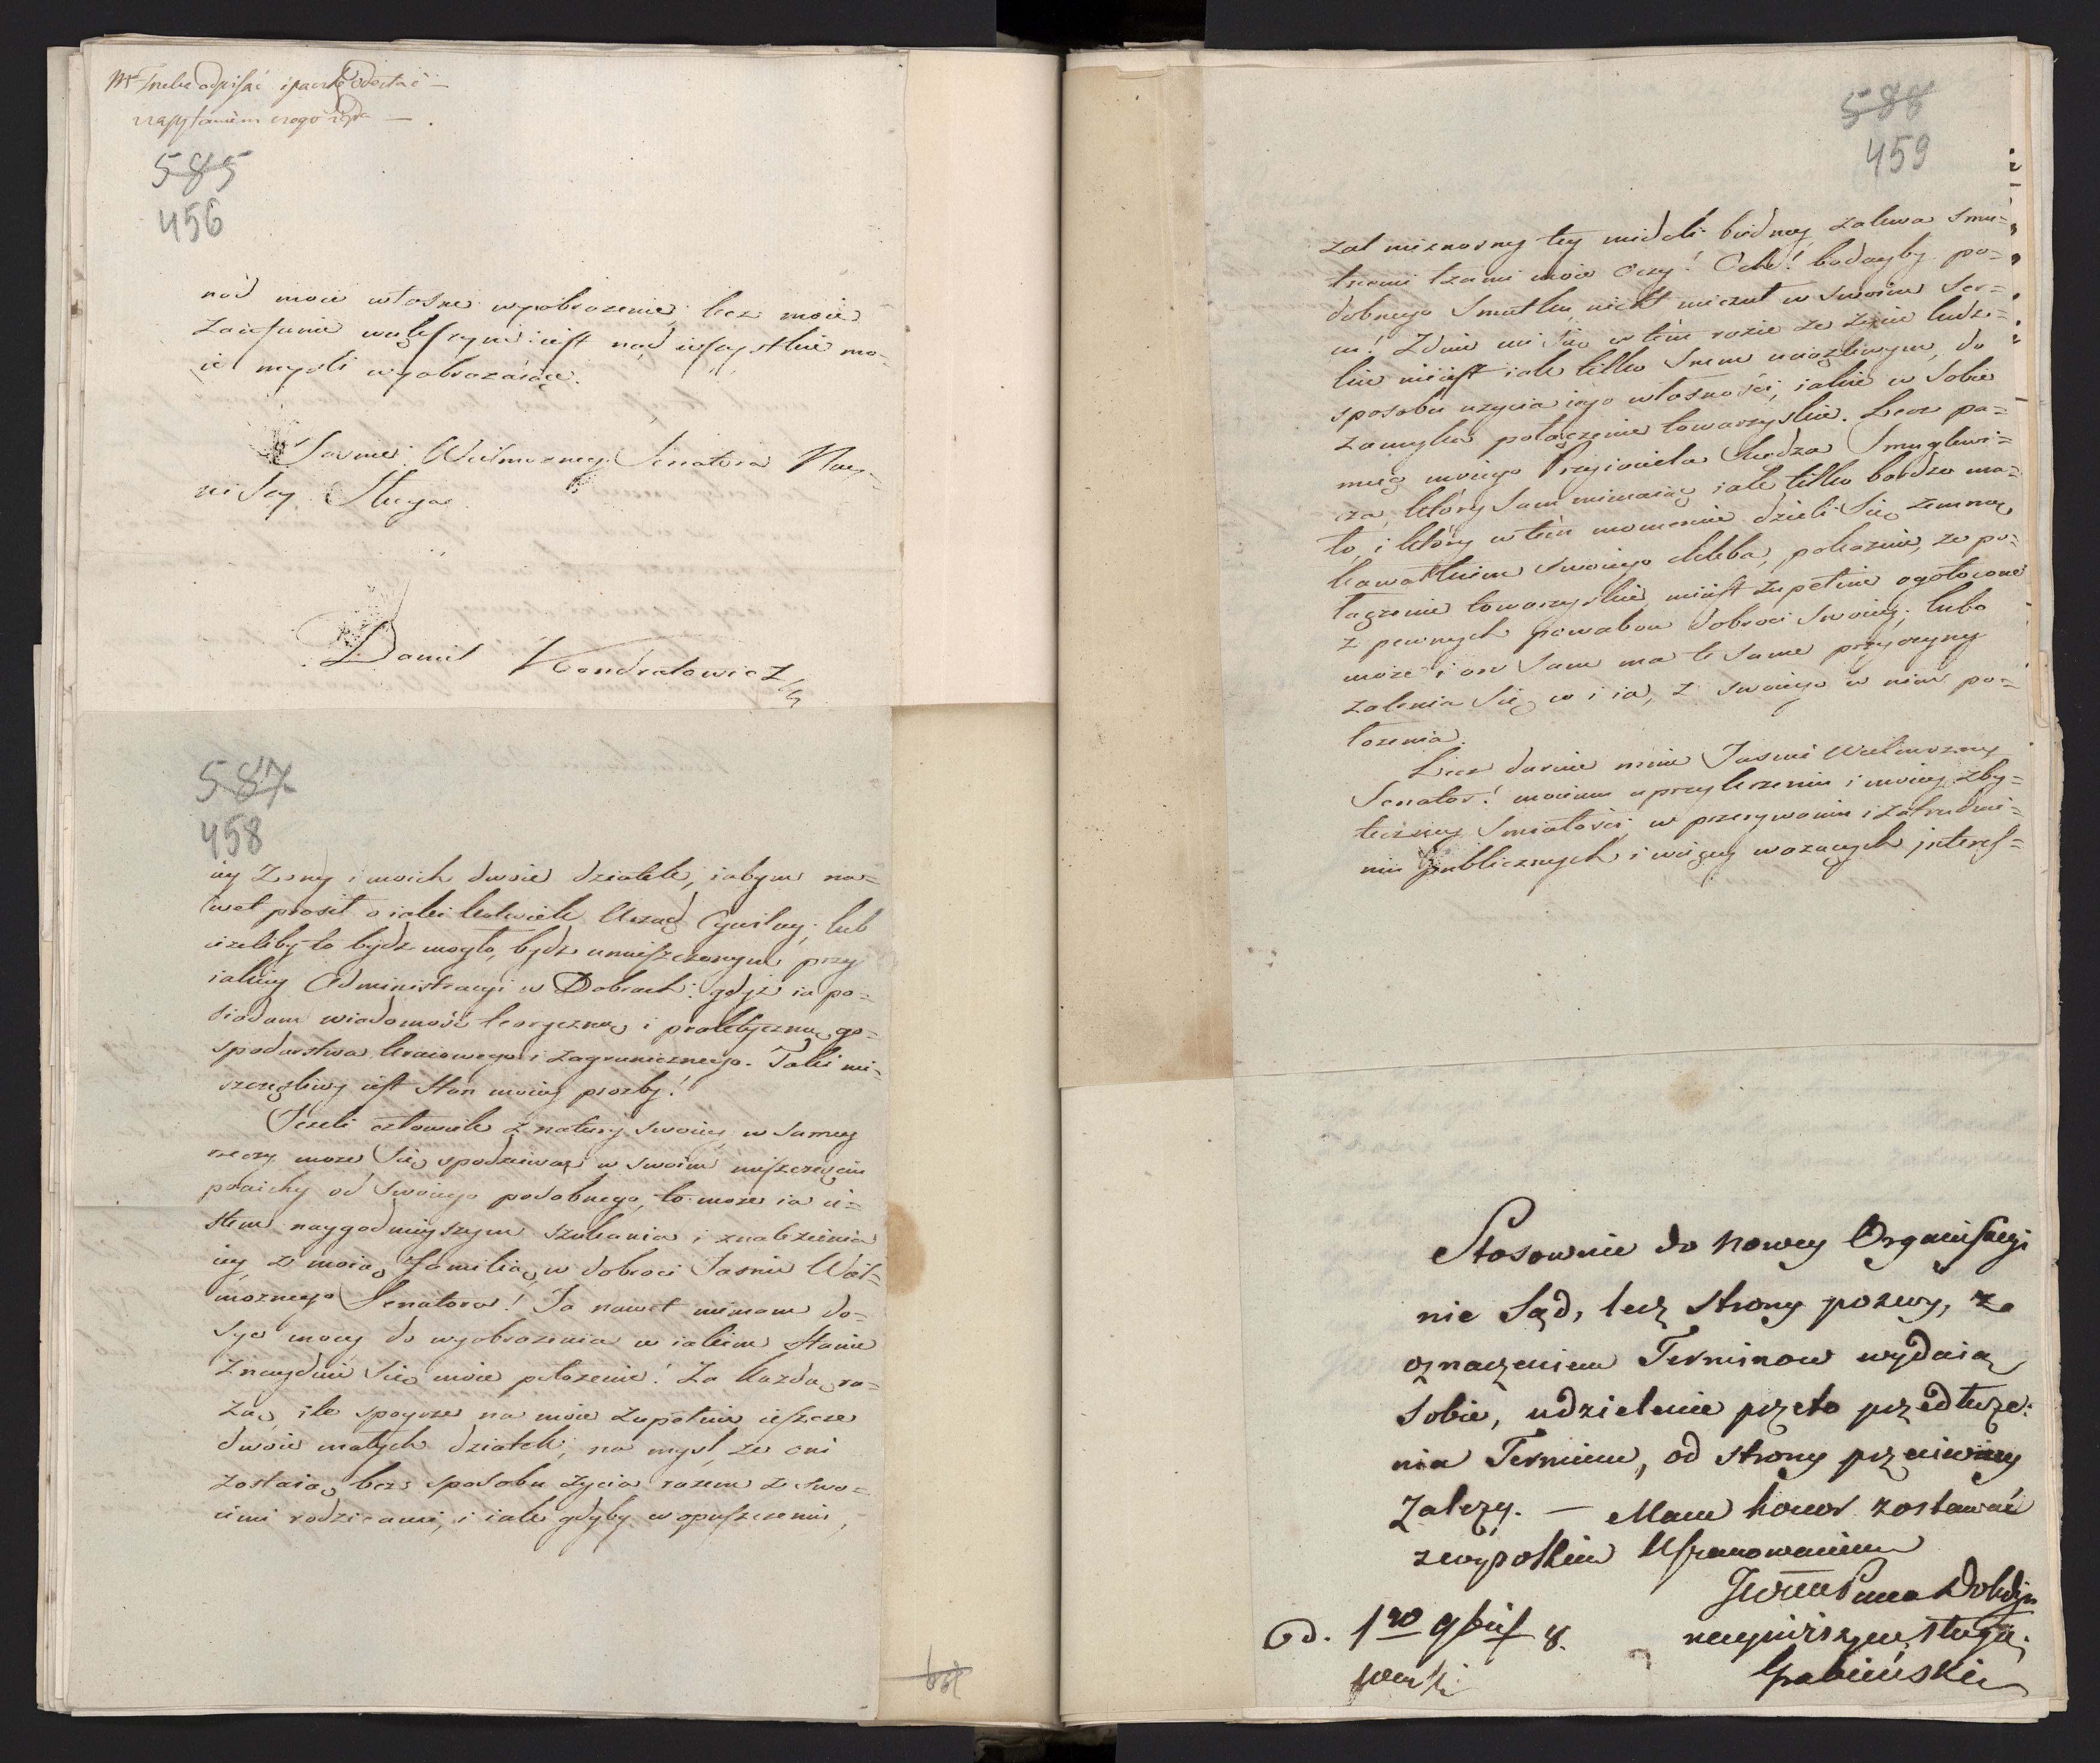 Trzeba odpisać i paczkę odesłać —
z zapytaniem czego żąda — .
585
456
nad moie własne wyobrażenie, lecz moie
zaufanie w iest nad wszystkie mo-
ie myśli wyobrażaiące.
Jasnie Wielmożnego Senatora Nay-
niższy Sługa
Daniel Kondratowicz
587
458
iey Żony i moich dwoie dziatek, iabym na=
wet prosił o iaki kolwiek Urząd Cywilny; lub
ieżeliby to bydz mogło, bydz umieszczonym przy
iakiey Administracyi w Dobrach: gdyż ia po=
siadam wiadomość teoryczną i praktyczną go=
spodarstwa kraiowego i zagranicznego. Taki nie=
szczęśliwy iest stan moiey prozby!
Jeżeli człowiek z natury swoiey w samey
rzeczy może się spodziewać w swoim nieszczęściu
pociechy od swoiego podobnego, to może ia ie=
stem naygodnieyszym szukania i znalezienia
iey z moią Familią w dobroci Jasnie Wiel=
możnego Senatora! Ja nawet niemam do=
syć mocy do wyobrażenia w iakim stanie
znayduie się moie położenie! Za każdą ra=
zą, ile spoyrze na moie zupełnie ieszcze
dwoie małych dziatek, na mysl, że oni
zostaią bez sposobu życia razem z swo=
iemi rodzicami, i iak gdyby w opuszczeniu,
588
459
żal nieznosny tey mysli biedney zalewa smu=
tnemi łzami moie Oczy! Och! bodayby po=
dobnego Smutku nikt nieczuł w swoim Ser=
cu! Zdaie mi się w tem razie że życie ludz=
kie nieiest iak tylko Snem uciążliwym, do
sposobu użycia iego własności, iakie w sobie
zamyka połączenie towarzyskie. Lecz po=
moc moiego Przyiaciela Chodza Smuglewi=
cza, który sam niemaiąc iak tylko bardzo ma=
ło, i który w tem momencie dzieli się zemną
kawałkiem swoiego chleba, pokazuie, że po=
łączenie towarzyskie nieiest zupełnie ogołocone
z pewnych powabow dobroci swoiey; lubo
może i on sam ma te same przyczyny
żalenia się co i ia, z swoiego w nim po=
łożenia.
Lecz daruie mnie Jasnie Wielmożny
Senator! moiemu uprzykrzeniu i moiey zby=
teczney smiałości, w przerywaniu i zatrudnie=
niu publicznych i więcey ważących interes=
Stosownie do nowey Organisacyi
nie Sąd, lecz strony pozwy, za
oznaczeniem Terminow wydaią
Sobie, udzielenie przeto przedłuże:
nia Terminu, od strony przeciwney
zależy. — Mam honor zostawać
z wysokim Uszanowaniem
JWWM Pana Dobdzn
nayniższym sługą.
Grabiński
d. 1go 9bris 8.